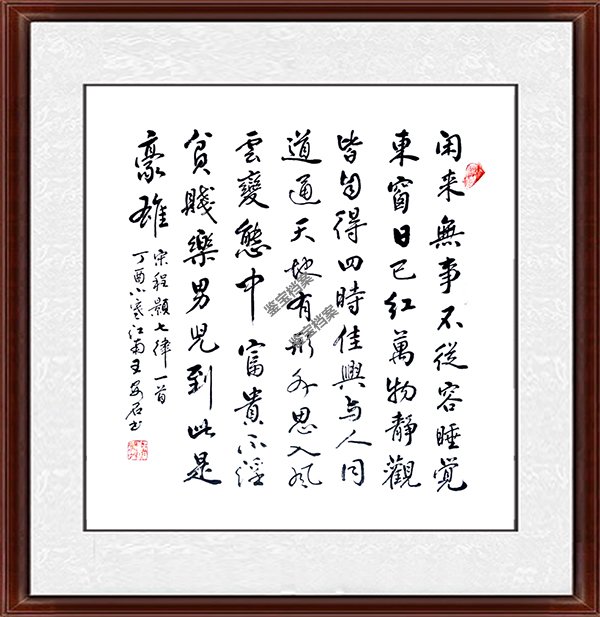 闲来無事不從容睡覺
東窗日已红萬物静觀
皆自得四時佳興与人同
道通天地有形外思入风
雲變態中富貴不淫
貧賤樂男兒到此是
豪雄
宋程顥七律一首
丁酉小寒江南王安石书
鉴宝档案
鉴宝档案